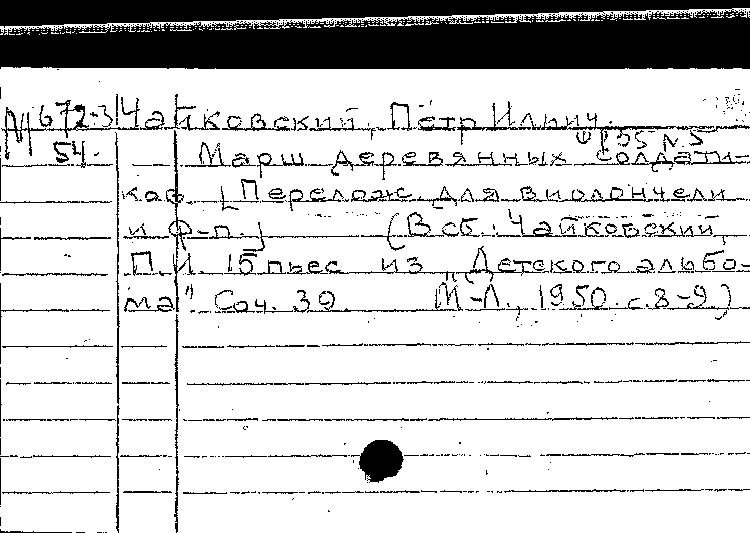 М 672-3 Чайковский, Пётр Ильич.
54.
Марш деревянных солдати-
ков. [Перелож. для виолончели
и ф-п.] (В сб.: Чайковский,
П.И. 15 пьес из "Детского альбо-
ма". Соч. 39. М-Л., 1950. с. 8-9.)